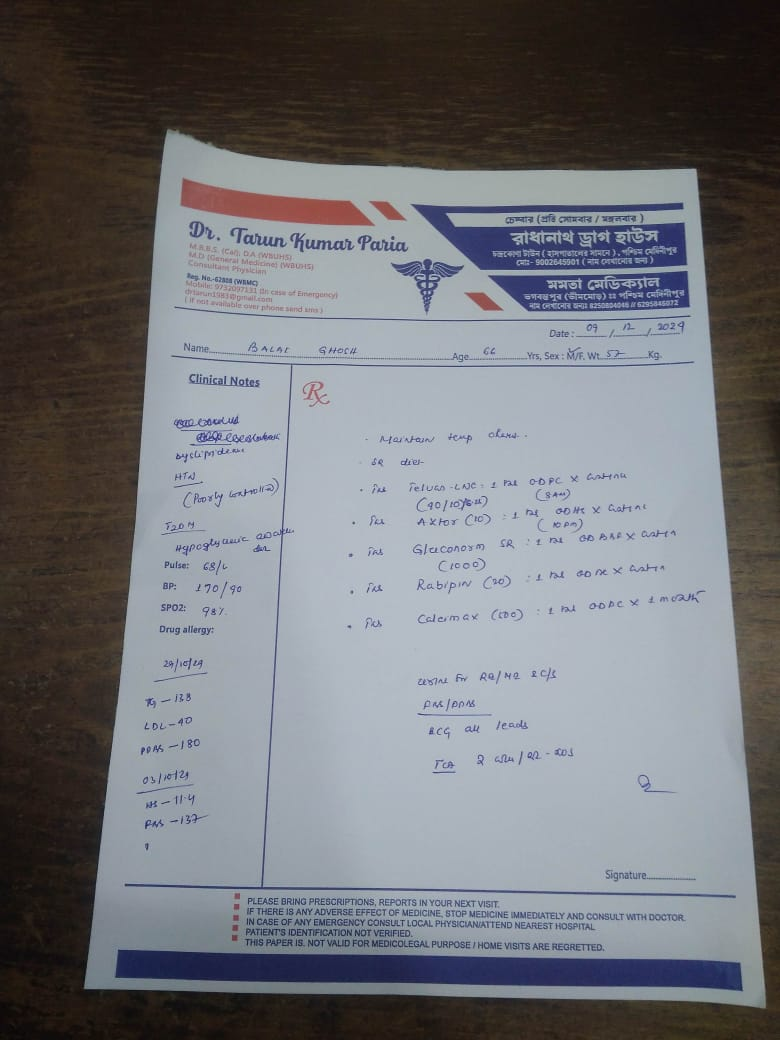 Dr. Tarun Kumar Paria
M.B.B.S. (Cal); D.A (WBUHS)
M.D (General Medicine) (WBUHS)
Consultant Physician
Reg. No.-62808 (WBMC)
Mobile: 9732097131 (In case of Emergency)
drtarun1983@gmail.com
( if not available over phone send sms )
চেম্বার (প্রতি সোমবার / মঙ্গলবার )
রাধানাথ ড্রাগ হাউস
চন্দ্রকোণা টাউন ( হাসপাতালের সামনে ) , পশ্চিম মেদিনীপুর
মোঃ- 9002645901 ( নাম লেখানোর জন্য )
মমতা মেডিক্যাল
ভগবন্তপুর (ভীমমোড়) ঃঃ পশ্চিম মেদিনীপুর
নাম লেখানোর জন্যঃ 8250804046 // 6295846072
Date : 09 / 12 / 2024
Name BALAI GHOSH Age 66 Yrs, Sex : M/F. Wt. 57 Kg.
Clinical Notes
Rx
Dyslipidemia
HTN
(Poorly controlled)
T2DM
Hypoglycemic
Pulse: 68/
BP: 170/90
SPO2: 98%
Drug allergy:
29/10/24
TG - 138
LDL - 40
PPBS - 180
03/10/24
Hb - 11.4
FBS - 137
· Maintain temp chart.
· SR diet
· Tab Telvas-LNC : 1 tab OD PC X
(8AM)
· Tab Axtor (10) : 1 tab OD HS X
(10 PM)
· Tab Gluconorm SR : 1 tab OD X
(1000)
· Tab Rabipin (20) : 1 tab OD X
· Tab Calcimax (500) : 1 tab OD PC X 1 month
Urine for RE/ME & C/S
FBS/PPBS
ECG all leads
Signature
PLEASE BRING PRESCRIPTIONS, REPORTS IN YOUR NEXT VISIT.
IF THERE IS ANY ADVERSE EFFECT OF MEDICINE, STOP MEDICINE IMMEDIATELY AND CONSULT WITH DOCTOR.
IN CASE OF ANY EMERGENCY CONSULT LOCAL PHYSICIAN/ATTEND NEAREST HOSPITAL
PATIENT'S IDENTIFICATION NOT VERIFIED.
THIS PAPER IS. NOT VALID FOR MEDICOLEGAL PURPOSE / HOME VISITS ARE REGRETTED.